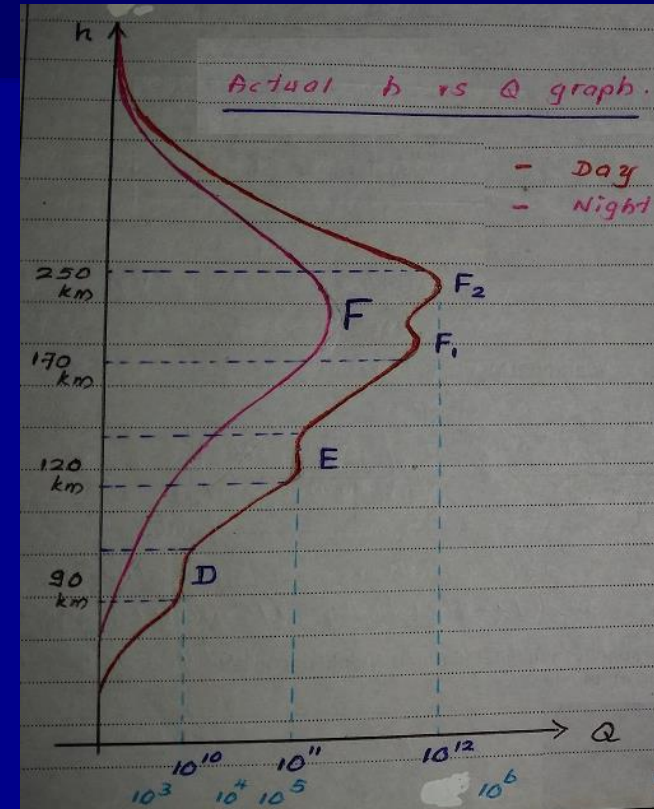 h
Actual h vs Q graph.
- Day
- Night
250 km
F₂
F
F₁
170 km
E
120 km
D
90 km
Q
10¹⁰ 10¹¹ 10¹²
10³ 10⁴ 10⁵ 10⁶